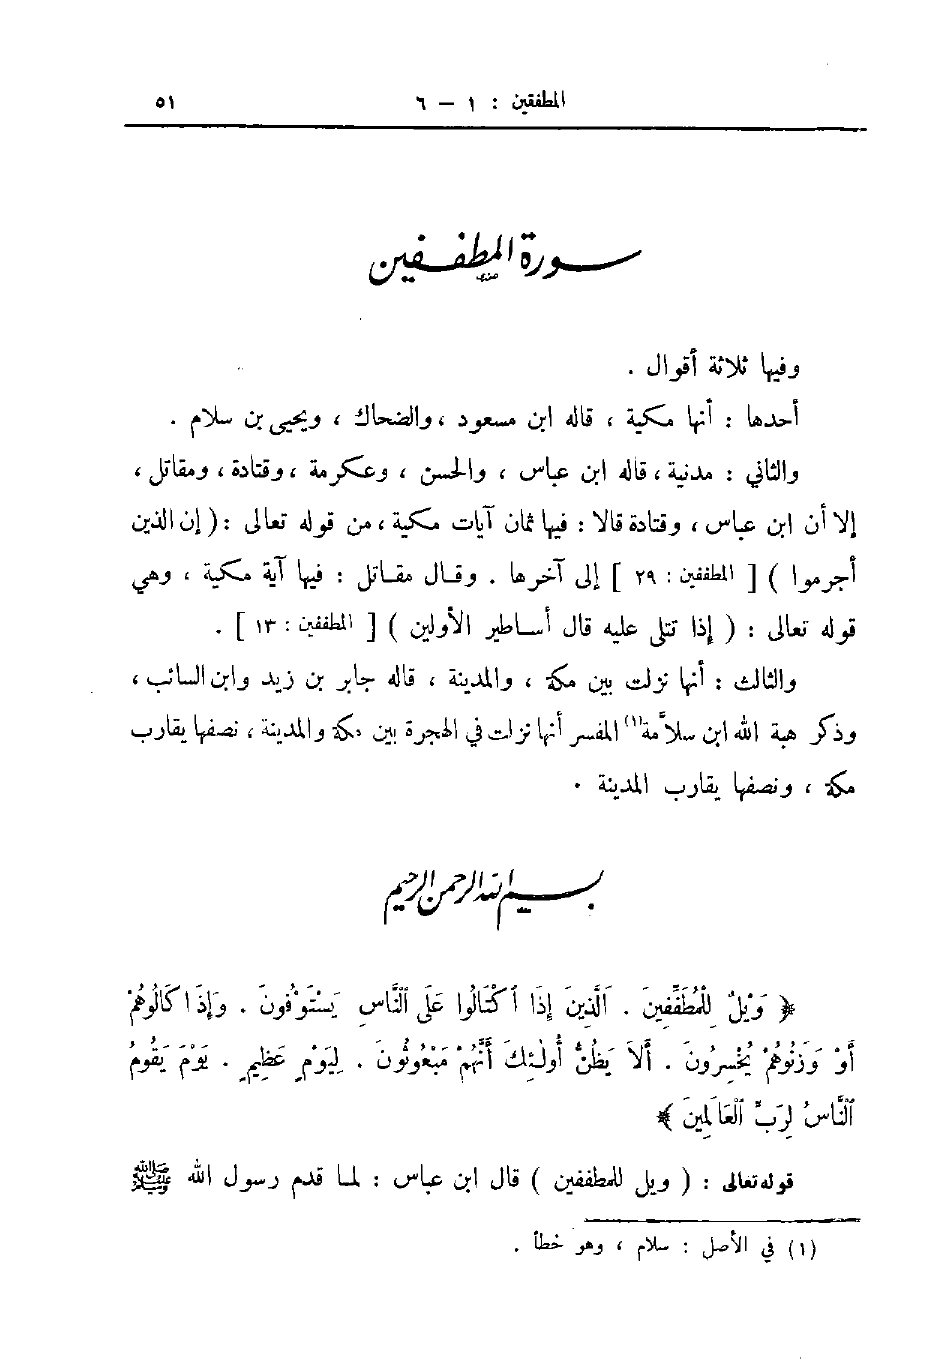 المطففين : ١ – ٦
٥١
سورة المطففين
وفيها ثلاثة أقوال .
أحدها : أنها مكية ، قاله ابن مسعود ، والضحاك ، ويحيى بن سلام .
والثاني : مدنية ، قاله ابن عباس ، والحسن ، وعكرمة ، وقتادة ، ومقاتل ،
إلا أن ابن عباس ، وقتادة قالا : فيها ثمان آيات مكية ، من قوله تعالى : ( إن الذين
أجرموا ) [ المطففين : ٢٩ ] إلى آخرها . وقال مقاتل : فيها آية مكية ، وهي
قوله تعالى : ( إذا تتلى عليه قال أساطير الأولين ) [ المطففين : ١٣ ] .
والثالث : أنها نزلت بين مكة ، والمدينة ، قاله جابر بن زيد وابن السائب ،
وذكر هبة الله ابن سلاَّمة(١) المفسر أنها نزلت في الهجرة بين مكة والمدينة ، نصفها يقارب
مكة ، ونصفها يقارب المدينة .
بسم الله الرحمن الرحيم
﴿ وَيْلٌ لِلْمُطَفِّفِينَ . ٱلَّذِينَ إِذَا ٱكْتَالُوا عَلَى ٱلنَّاسِ يَسْتَوْفُونَ . وَإِذَا كَالُوهُمْ
أَوْ وَزَنُوهُمْ يُخْسِرُونَ . أَلَا يَظُنُّ أُولٰئِكَ أَنَّهُمْ مَبْعُوثُونَ . لِيَوْمٍ عَظِيمٍ . يَوْمَ يَقُومُ
ٱلنَّاسُ لِرَبِّ ٱلْعَالَمِينَ ﴾
قوله تعالى : ( ويل للمطففين ) قال ابن عباس : لما قدم رسول الله ﷺ
(١) في الأصل : سلام ، وهو خطأ .